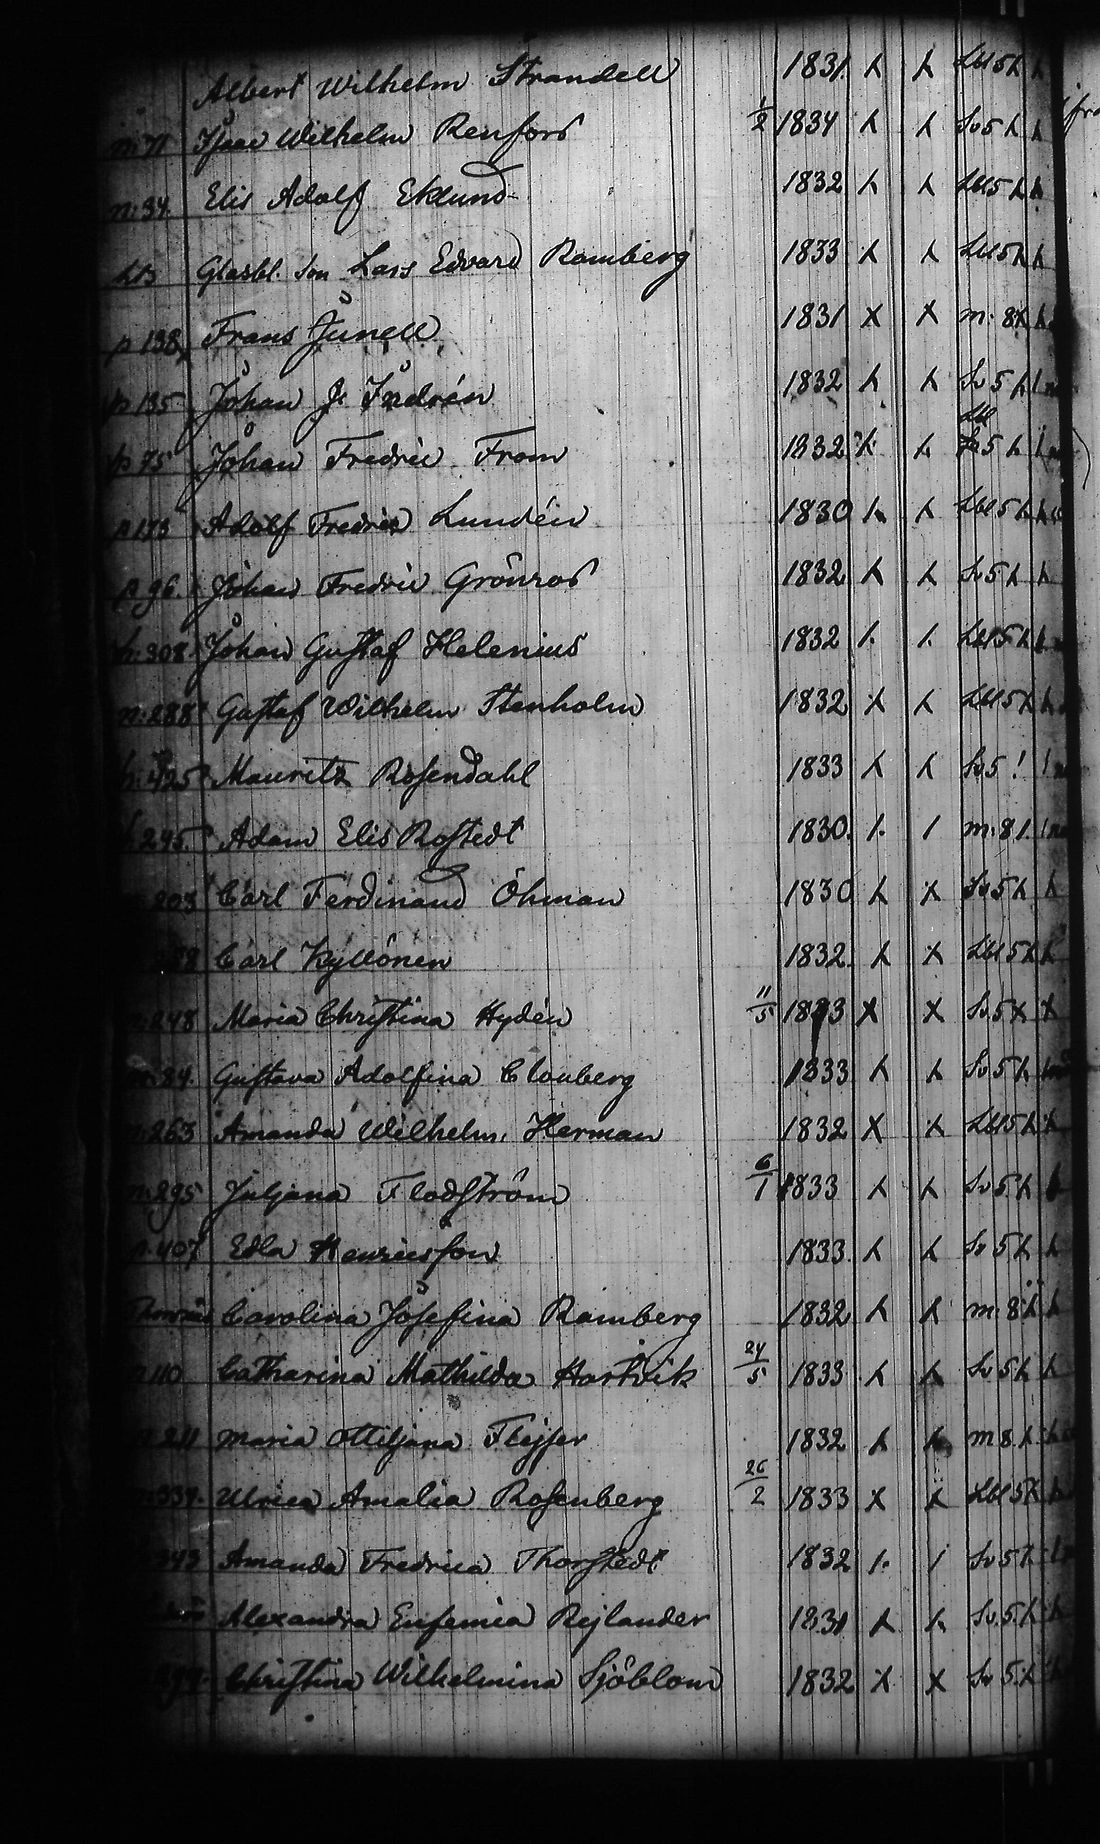 Albert Wilhelm Strandell 1831. x x Lbl 5 x x
n: 71 Isaac Wilhelm Renfors 1/2 1834 x x Sv 5 x x
n: 34. Elis Adolf Eklund 1832 x x Lbl 5 x x
Glasbl. son Lars Edvard Ramberg 1833 x x Lbl 5 x x
p 138, Frans Junell 1831 x x m: 8 x
p 135 Johan J. Indrén 1832 x x Sv 5 x
p 75 Johan Fredric From 1832 x x Lbl 5 x
p 173 Adolf Fredric Lundén 1830 x x Lbl 5 x
p 96. Johan Fredric Grönros 1832 x x Sv 5 x x
n: 308 Johan Gustaf Helenius 1832 /. /. Lbl 5 x
n: 288 Gustaf Wilhelm Stenholm 1832 x x Lbl 5 x
n: 425 Mauritz Rosendahl 1833 x x Sv 5 !
295. Adam Elis Rostedt 1830. /. / m: 8 /.
203 Carl Ferdinand Öhman 1830 x x Sv 5 x x
Carl Kyllönen 1832. x x Lbl 5 x x
248 Maria Christina Hydén 11/5 1833 x x Sv. 5 x x
n: 84. Gustava Adolfina Clouberg 1833 x x Sv 5 x
n: 263 Amanda Wilhelm. Herman 1832 x x Lbl 5 x x
n: 295 Juljana Flodström 6/1 1833 x x Sv 5 x
n. 407 Edla Henricsson 1833. x x Sv 5 x x
Carolina Josefina Ramberg 1832 x x m: 8 x x
110 Catharina Mathilda Hartvik 24/5 1833 x x Sv 5 x x
211 Maria Ottiljana Flejser 1832 x x m 8 x
339. Ulrica Amalia Rosenberg 26/2 1833 x x Lbl 5 x
343 Amanda Fredrica Thorstedt 1832 /. / Sv 5 x
Alexandra Eufemia Rejlander 1831 x x Sv. 5 x
Christina Wilhelmina Sjöblom 1832 x x Sv 5 x